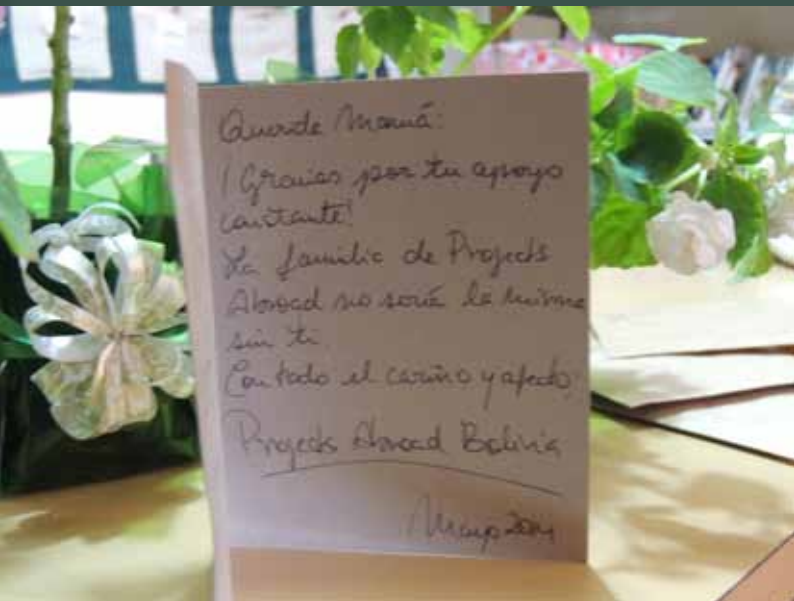 Querida Mamá:
¡Gracias por tu apoyo
constante!
La familia de Projects
Abroad no sería la misma
sin ti.
Con todo el cariño y afecto,
Projects Abroad Bolivia
Mayo 2014